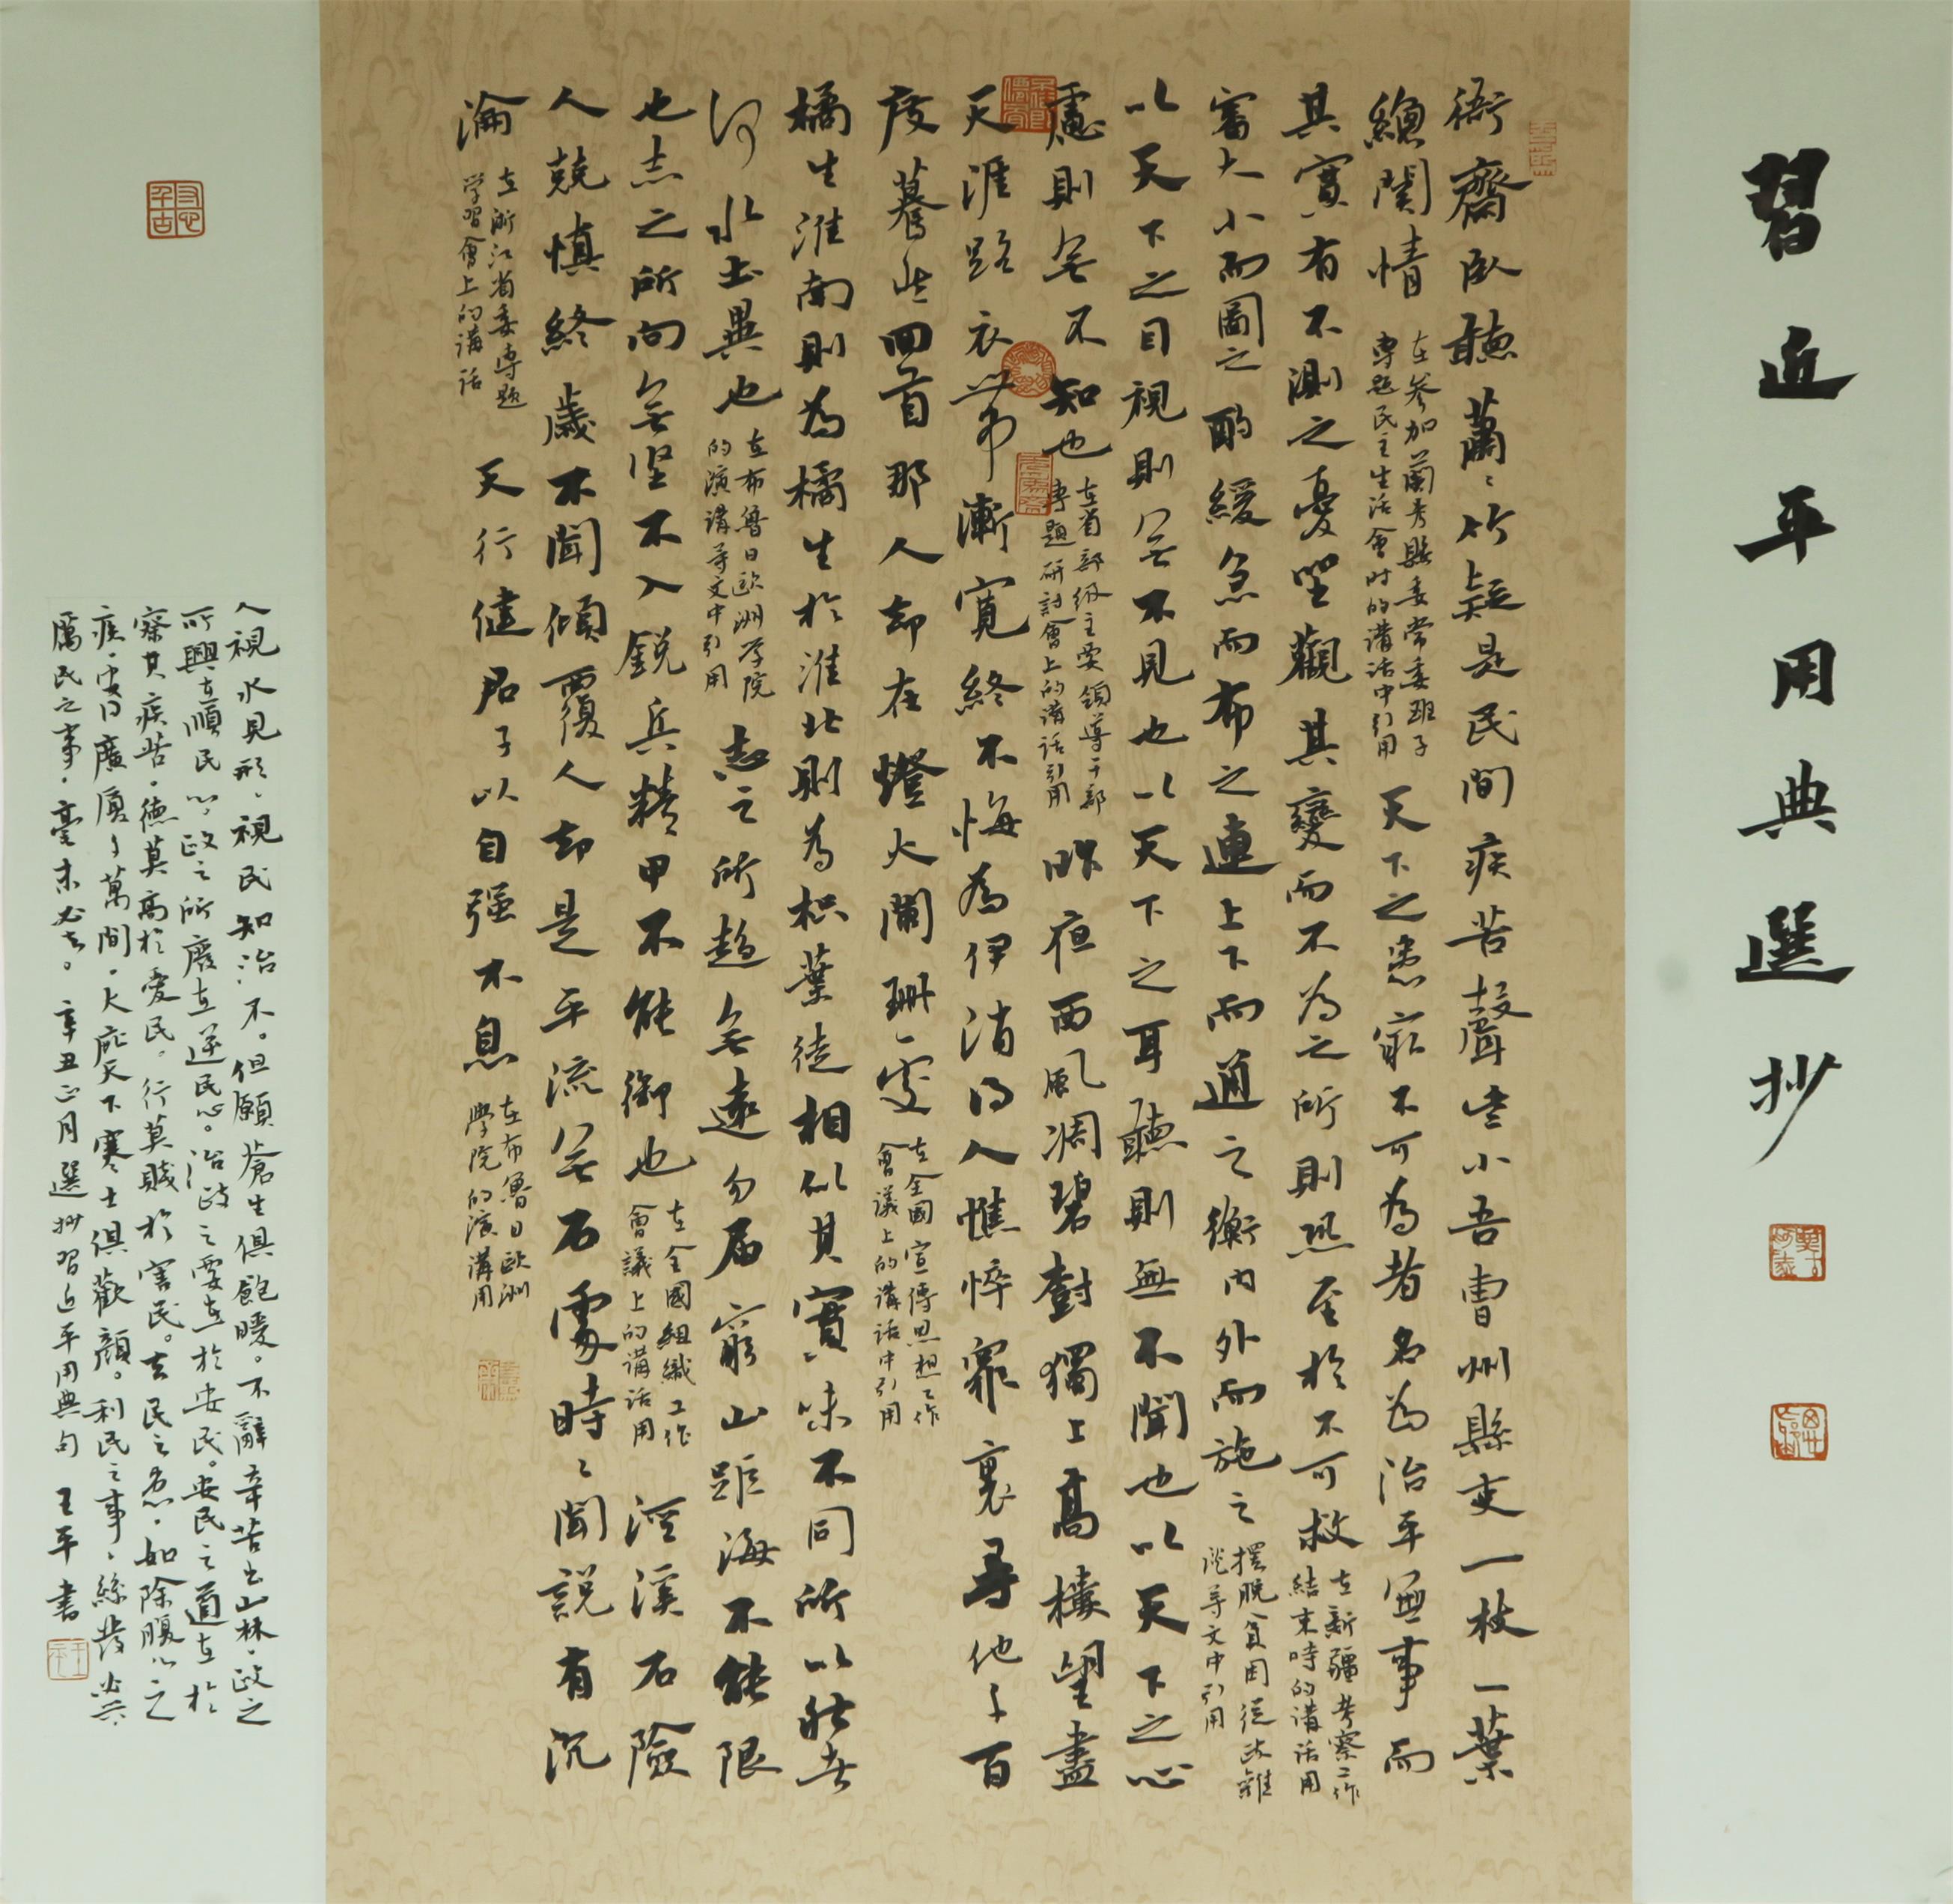 習近平用典選抄
衙齋臥聽蕭蕭竹疑是民間疾苦聲些小吾曹州縣吏一枝一葉
總關情
在參加蘭考縣委常委班子
專題民主生活會时的講話中引用
天下之患最不可為者名為治平無事而
其實有不測之憂坐觀其變而不為之所則恐至於不可救
在新疆考察工作
結束時的講話用
審大小而圖之酌緩急而布之連上下而通之衡內外而施之
擺脫貧困從政雜
談等文中引用
以天下之目視則無不見也以天下之耳聽則無不聞也以天下之心
慮則無不知也
在省部級主要領導干部
專題研討會上的講話引用
昨夜西風凋碧樹獨上高樓望盡
天涯路衣帶漸寬終不悔為伊消得人憔悴眾裏尋他〻百
度驀然回首那人却在燈火闌珊處
在全國宣傳思想工作
會議上的講話中引用
橘生淮南則為橘生於淮北則為枳葉徒相似其實味不同所以然者
何水土異也
在布魯日歐洲学院
的演講等文中引用
志之所趨無遠勿屆窮山距海不能限
也志之所向無堅不入銳兵精甲不能禦也
在全國組織工作
會議上的講話用
涇溪石險
人兢慎終歲不聞傾覆人却是平流無石處時〻聞說有沉
淪
在浙江省委專題
学習會上的講話
天行健君子以自强不息
在布魯日歐洲
學院的演講用
人視水見形、視民知治不。但願蒼生俱飽暖。不辭辛苦出山林。政之
所興在順民心、政之所廢在逆民心。治政之要在於安民。安民之道在於
察其疾苦。德莫高於愛民。行莫賤於害民。去民之患、如除腹心之
疾。安得廣廈千萬間。大庇天下寒士俱歡顏。利民之事、絲髮必興
厲民之事、毫末必去。辛丑正月選抄習近平用典句 王平書